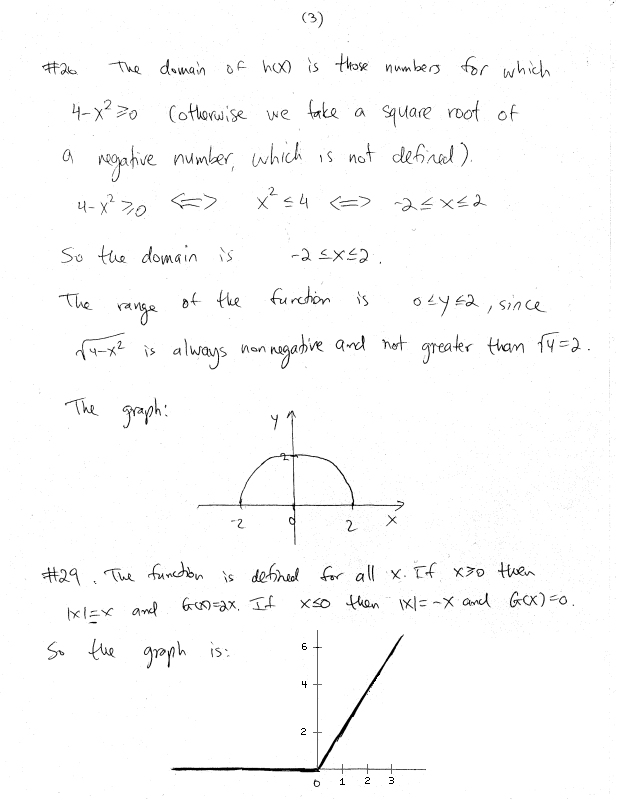 (3)
#26 The domain of h(x) is those numbers for which
4-x² ≥ 0 (otherwise we take a square root of
a negative number, which is not defined).
4-x² ≥ 0 <=> x² ≤ 4 <=> -2 ≤ x ≤ 2
So the domain is -2 ≤ x ≤ 2.
The range of the function is 0 ≤ y ≤ 2, since
√4-x² is always nonnegative and not greater than √4 = 2.
The graph:
y
2
-2 0 2 x
#29. The function is defined for all x. If x ≥ 0 then
|x| = x and G(x) = 2x. If x ≤ 0 then |x| = -x and G(x) = 0.
So the graph is:
6
4
2
0 1 2 3